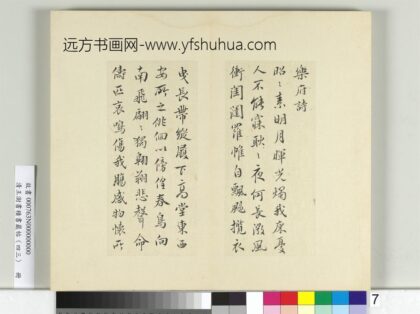 远方书画网-www.yfshuhua.com
樂府詩
昭〻素明月暉光燭我床憂
人不能寐耿〻夜何長微風
衝閨闥羅帷自飄颺攬衣
曳長帶縱履下高堂東西
安所之徘徊以傍徨春鳥向
南飛翩〻獨翱翔悲聲命
儔匹哀鳴傷我腸感物懷所
7